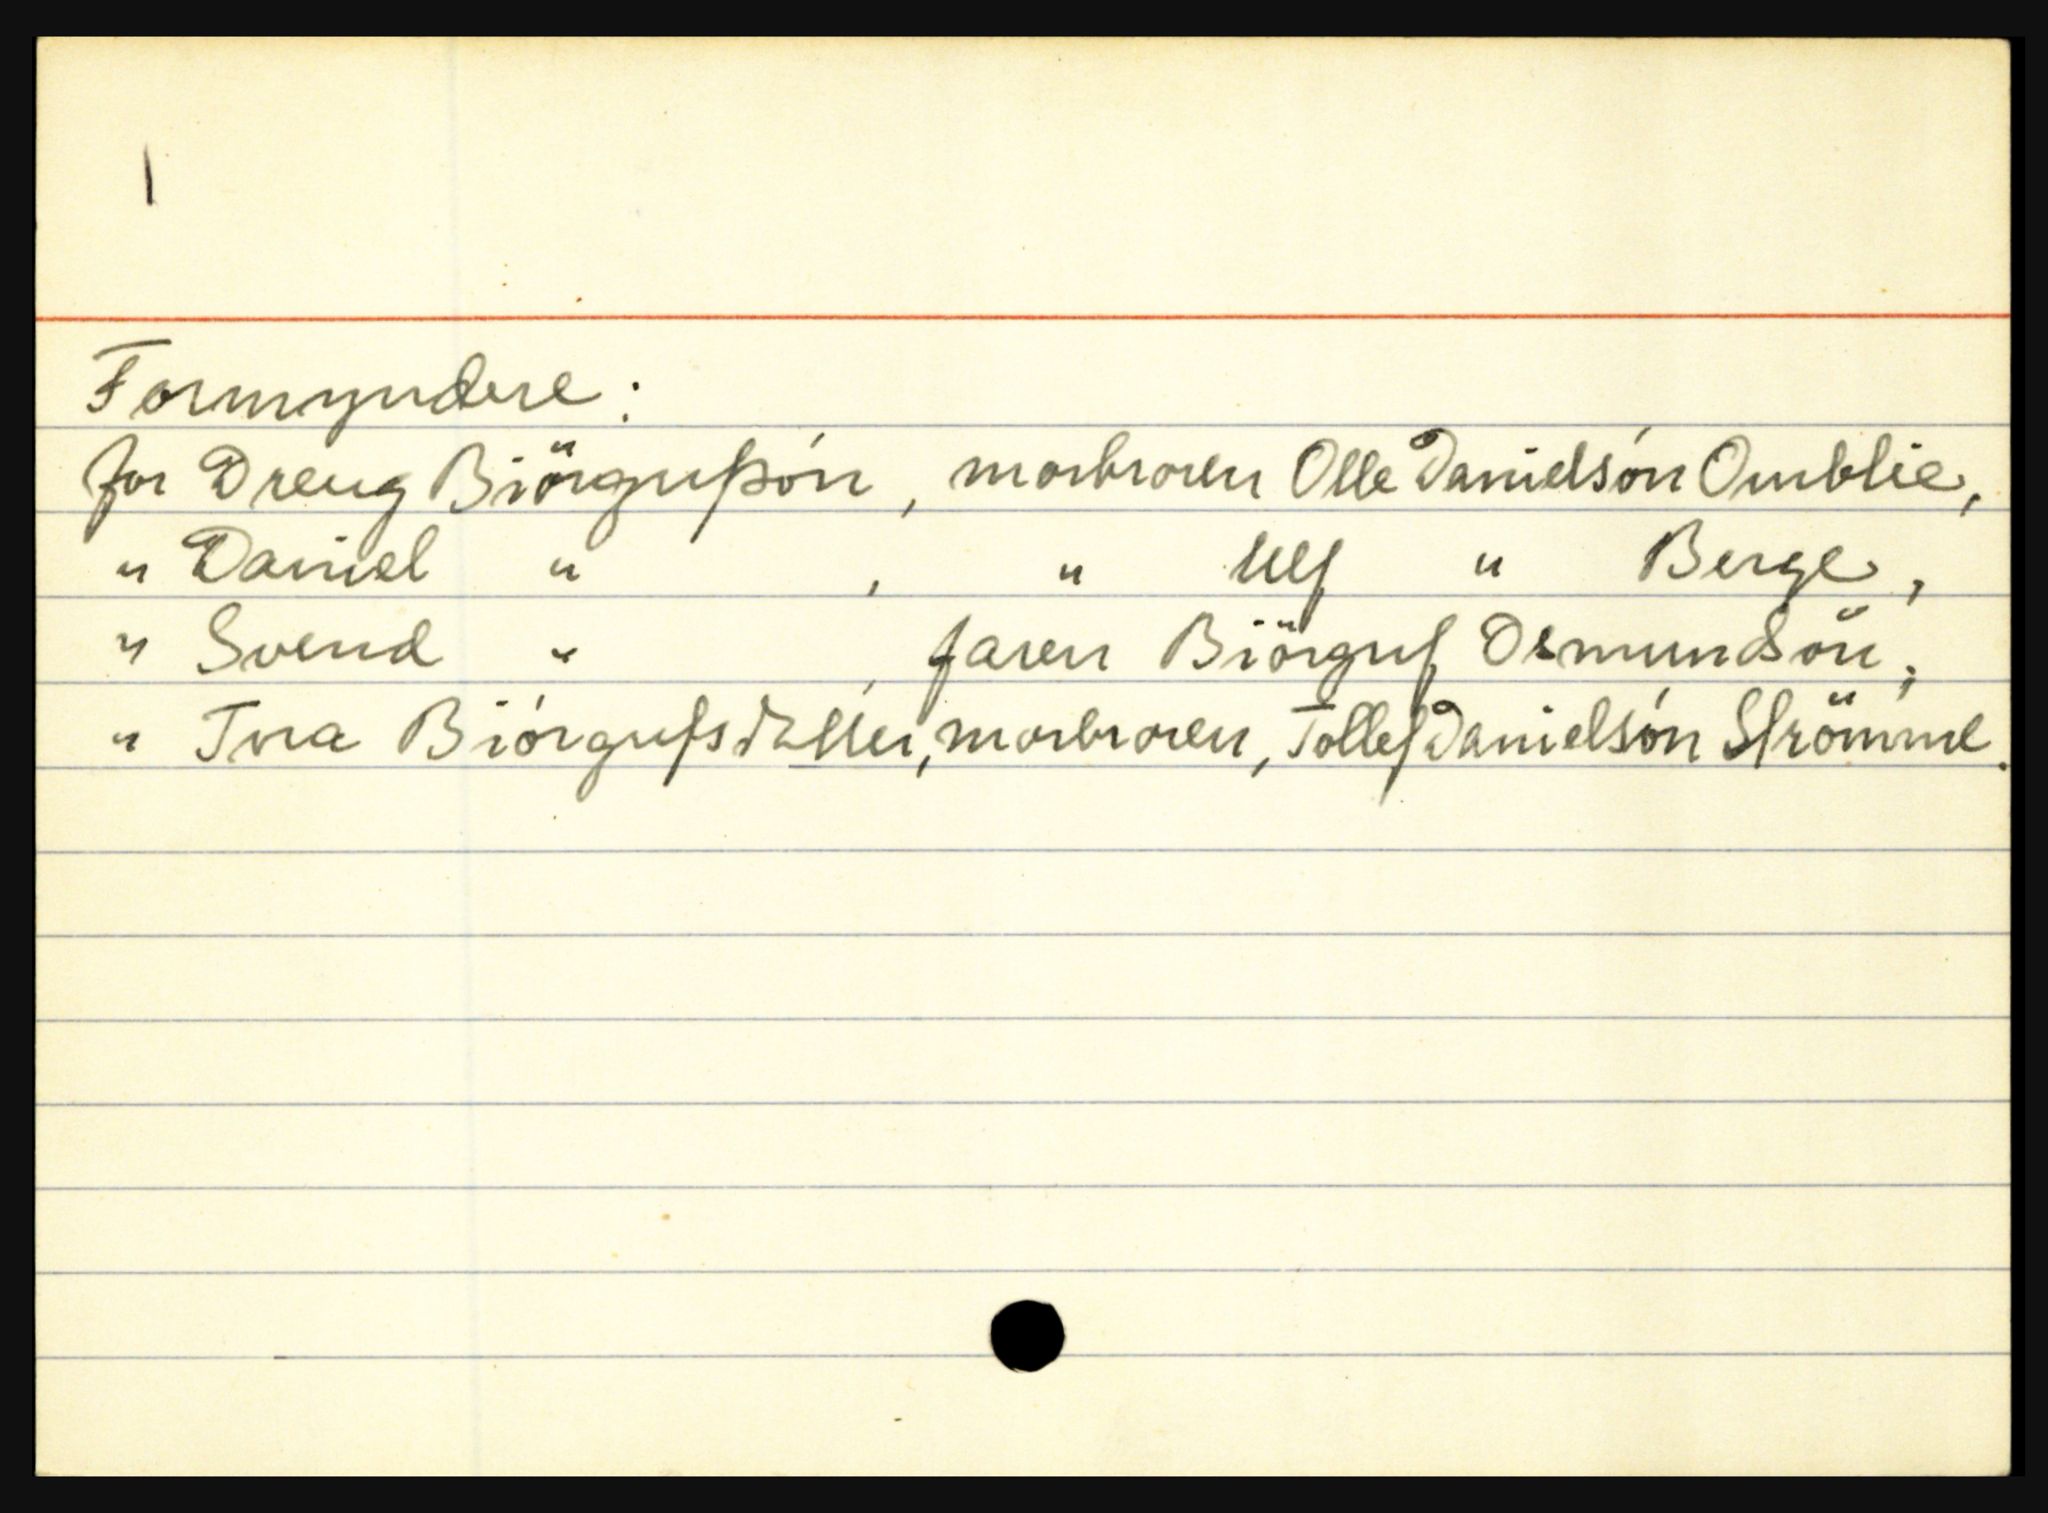 Formyndere:
for Dreug Biörgufsón, morbroren Olle Danielsón Omblie,
" Daniel " , " Ulf " Berge,
" Svend " , faren Biörguf Osmundsön,
" Tora Biórgufsdatter, morbroren, Tollef Danielsón Strömme.